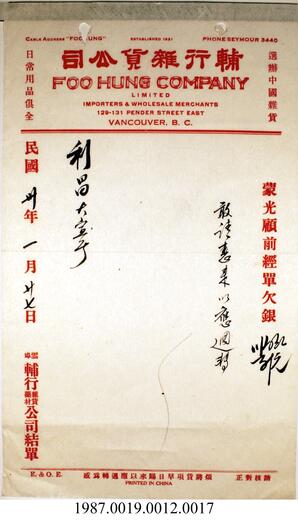 CABLE ADDRESS "FOO HUNG"
ESTABLISHED 1921
PHONE SEYMOUR 3440
司公貨雜行輔
FOO HUNG COMPANY
LIMITED
IMPORTERS & WHOLESALE MERCHANTS
129-131 PENDER STREET EAST
VANCOUVER, B. C.
選辦中國雜貨
日常用品俱全
蒙光顧前經單欠銀
敢請惠來以應週轉
利昌大宝号
民國卅年一月廿七日
雲埠輔行雜貨藥材公司結單
E. & O. E.
感為轉週應以來賜日早項貨將煩
正對核請
PRINTED IN CHINA
1987.0019.0012.0017